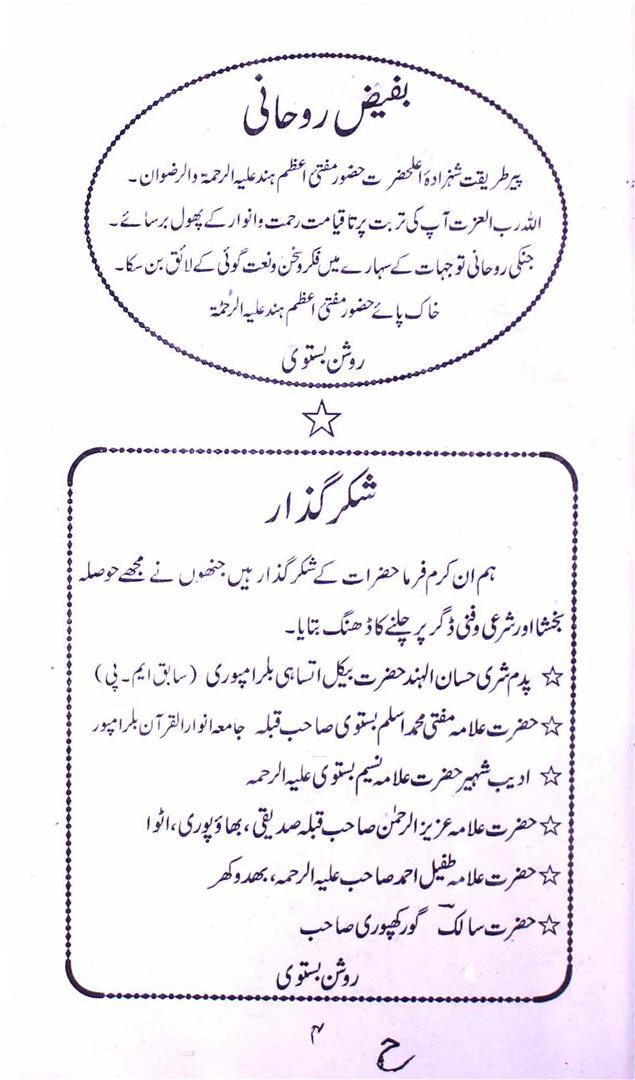 بفیض روحانی
پیر طریقت شہزادۂ اعلیٰحضرت حضور مفتیٔ اعظم ہند علیہ الرحمۃ والرضوان۔
اللہ رب العزت آپ کی تربت پر تا قیامت رحمت و انوار کے پھول برسائے۔
جنکی روحانی توجہات کے سہارے میں فکر و سخن و نعت گوئی کے لائق بن سکا۔
خاک پائے حضور مفتیٔ اعظم ہند علیہ الرحمۃ
روشن بستوی
شکر گذار
ہم ان کرم فرما حضرات کے شکر گذار ہیں جنھوں نے مجھے حوصلہ
بخشا اور شرعی و فنی ڈگر پر چلنے کا ڈھنگ بتایا۔
☆ پدم شری حسان الہند حضرت بیکل اتساہی بلرامپوری (سابق ایم۔پی)
☆ حضرت علامہ مفتی محمد اسلم بستوی صاحب قبلہ جامعہ انوار القرآن بلرامپور
☆ ادیب شہیر حضرت علامہ نسیم بستوی علیہ الرحمہ
☆ حضرت علامہ عزیز الرحمٰن صاحب قبلہ صدیقی، بھاؤپوری، اٹوا
☆ حضرت علامہ طفیل احمد صاحب علیہ الرحمہ، بھدوکھر
☆ حضرت سالک گورکھپوری صاحب
روشن بستوی
۴
ح